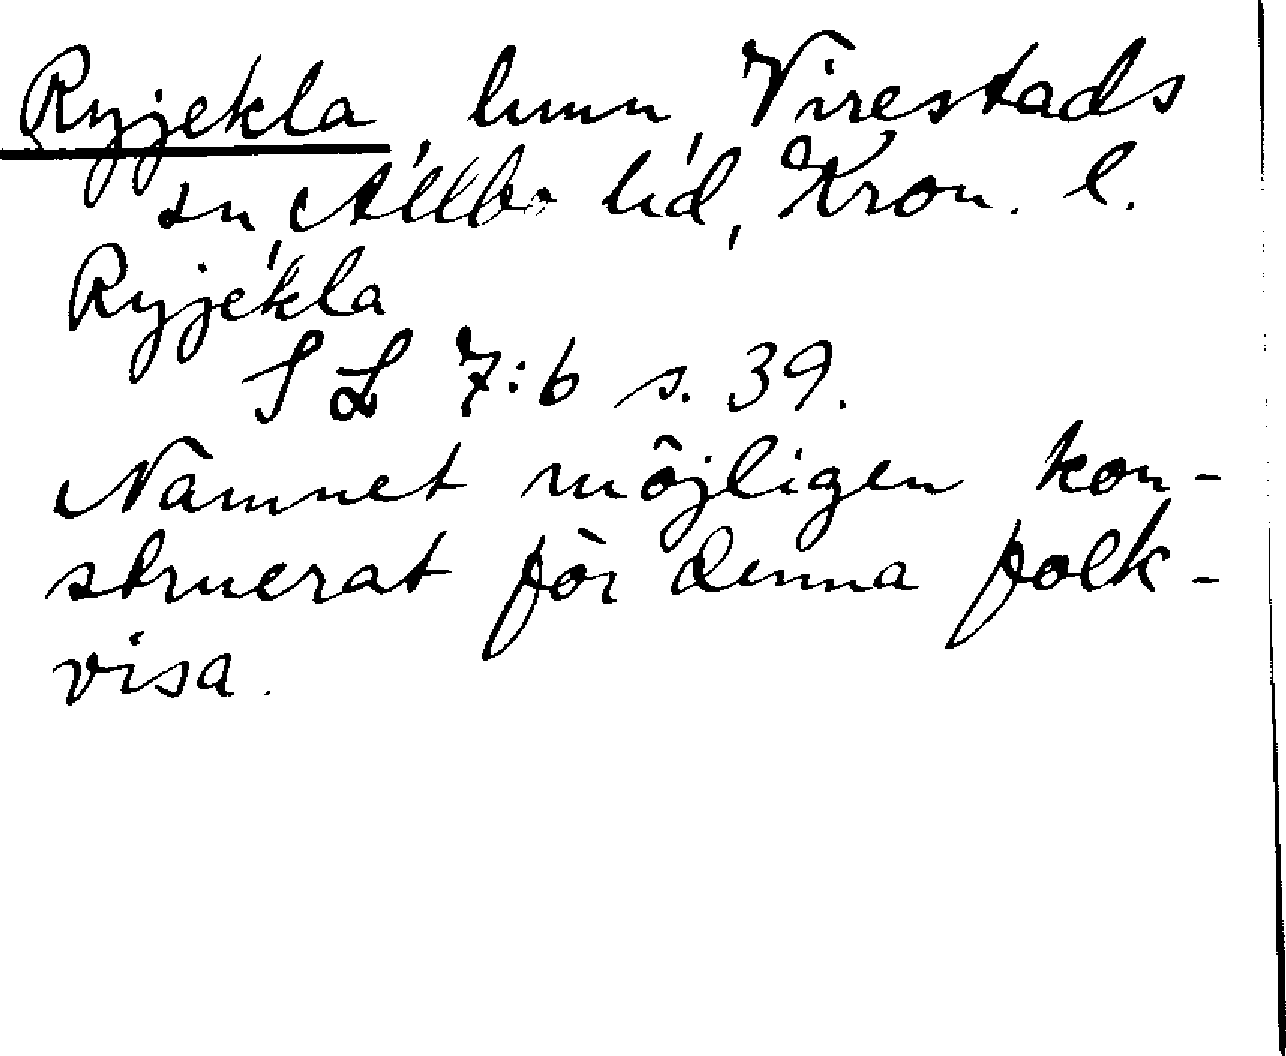 Ryjekla, hmn, Virestads
sn, Allbo hd, Kron. l.
Ryjekla
SL 7:6 s. 39.
Namnet möjligen kon-
struerat för denna folk-
visa.